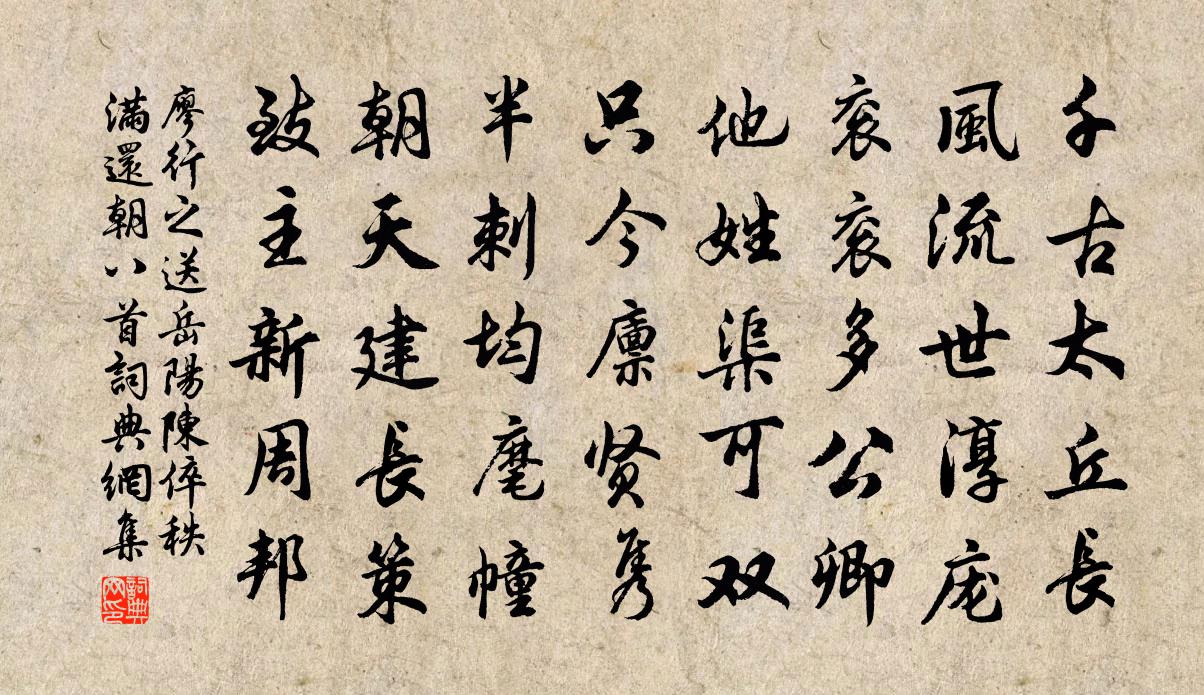 千古太丘長
風流世淳庞
衮衮多公卿
他姓渠可双
只今廪贤隽
半刺均麾幢
朝天建長策
致主新周邦
廖行之送岳陽陳倅秩
滿還朝八首詞典網集
詞典网印